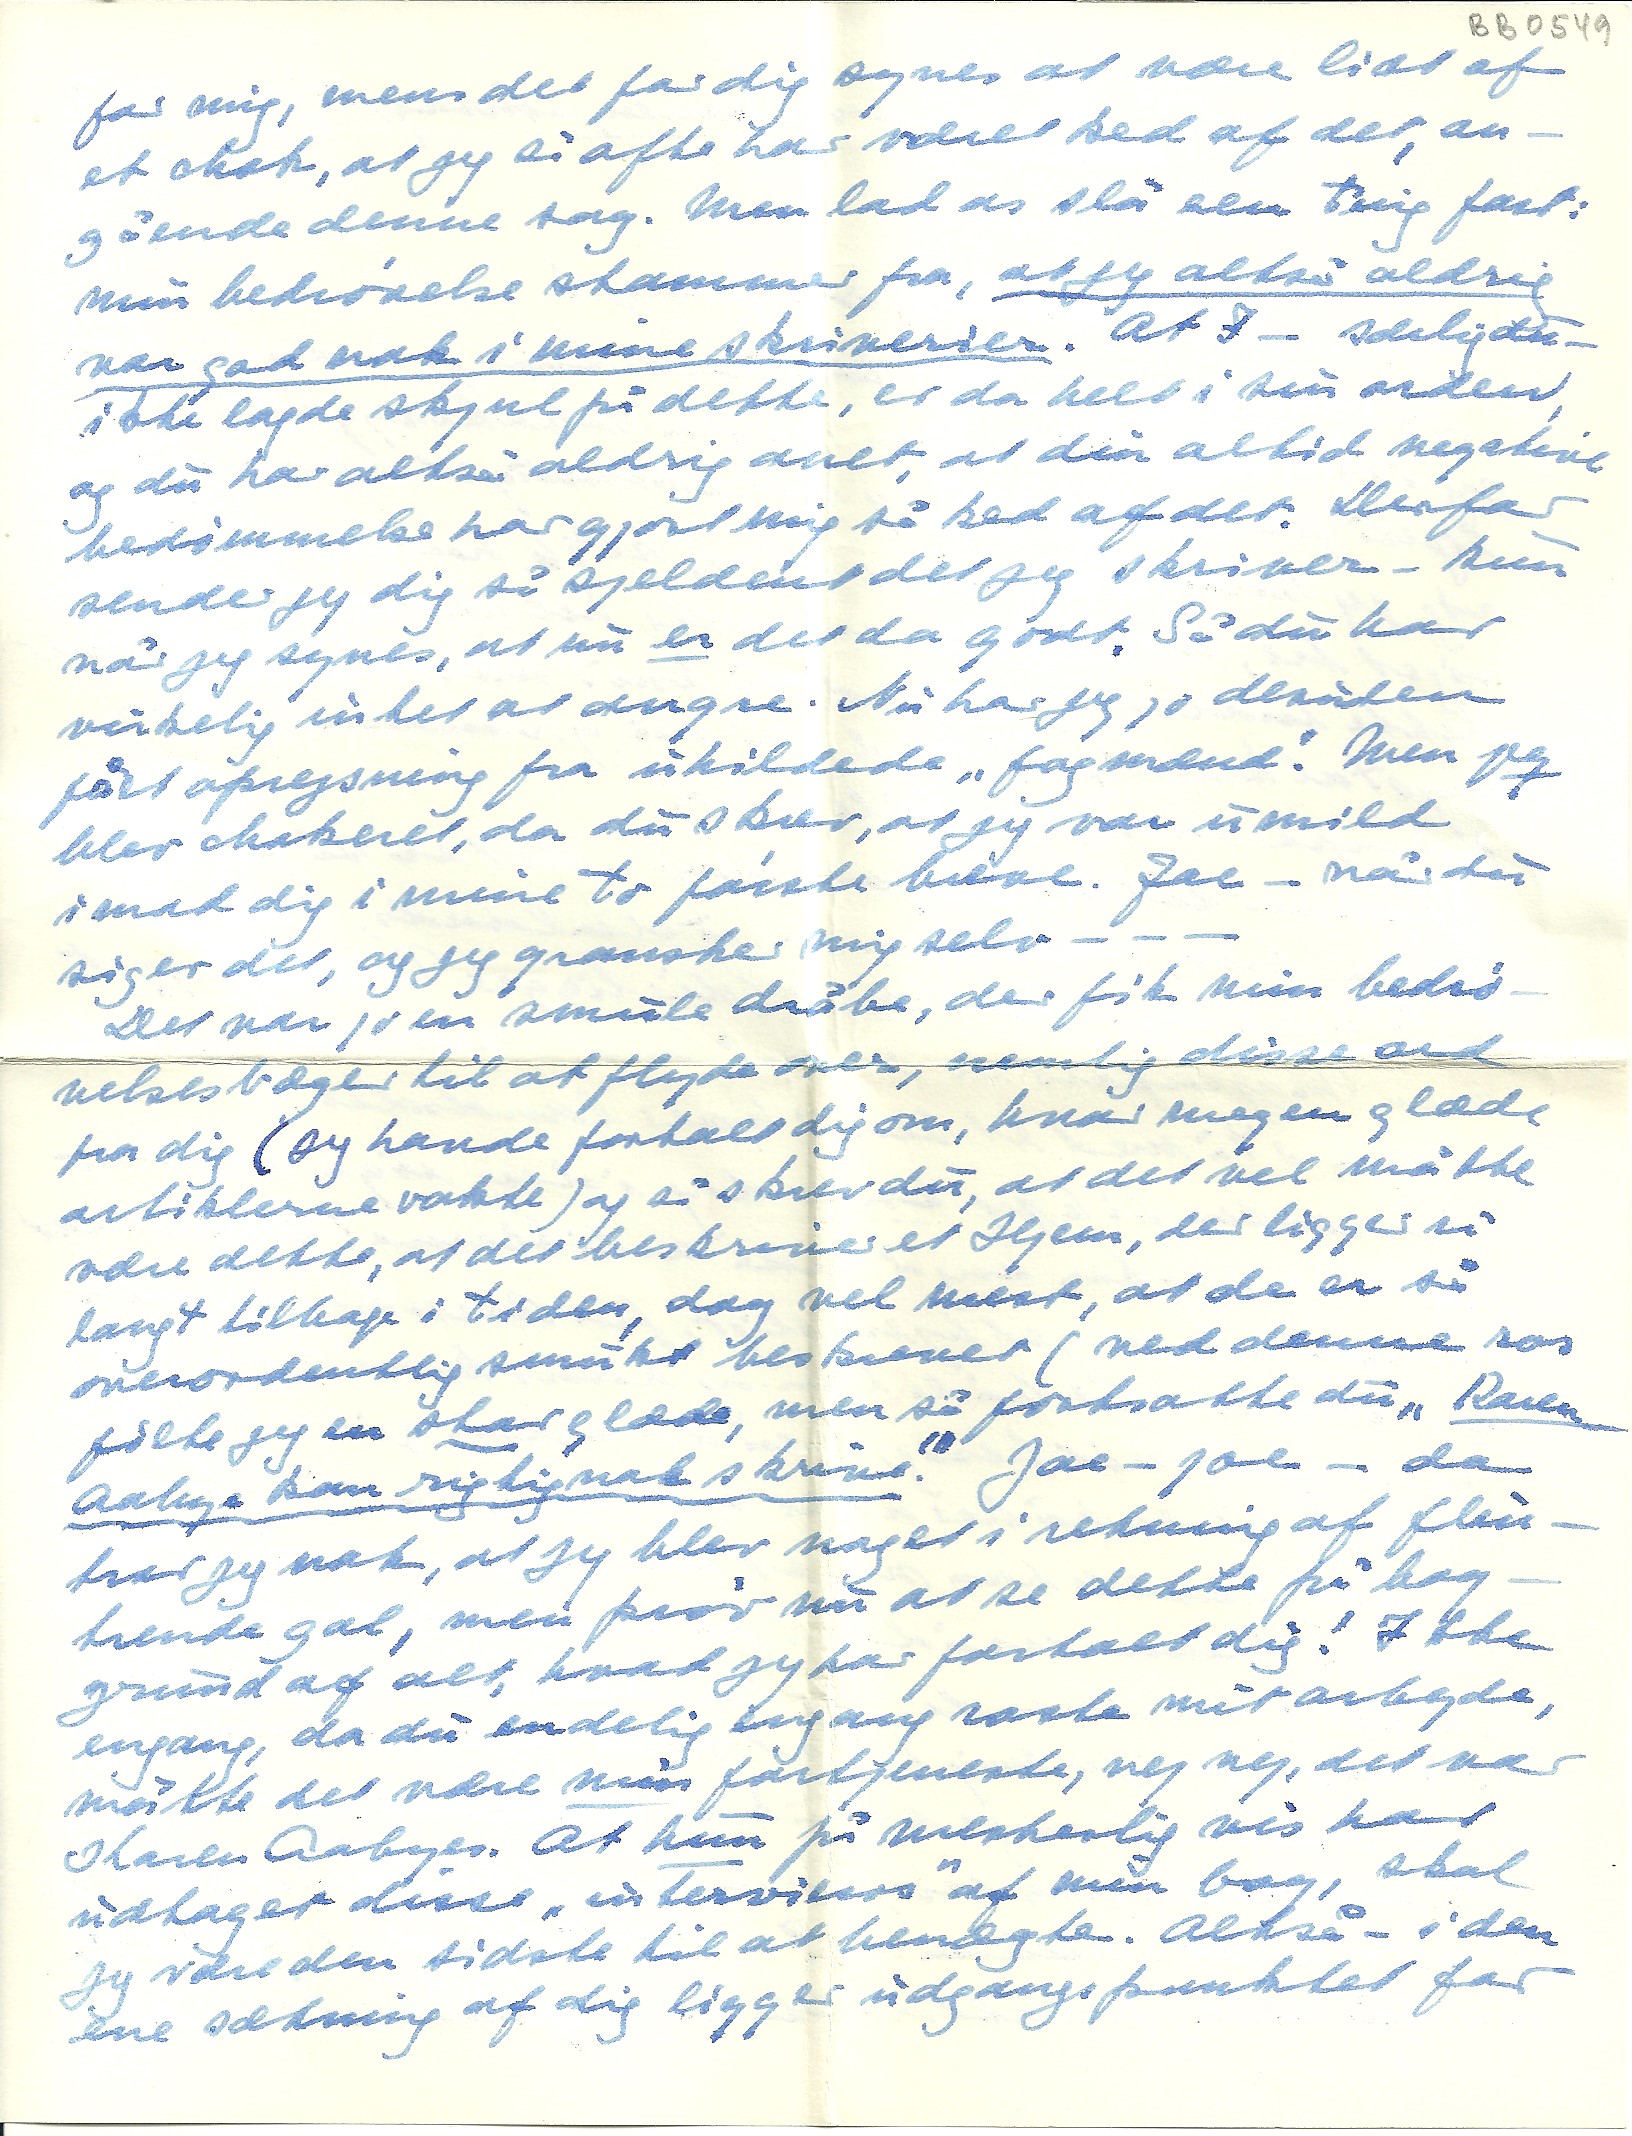 BB0549
for mig, mens det for dig synes at være lidt af
et chok, at jeg så ofte har været ked af det, an-
gående denne sag. Men lad os slå een ting fast:
min bedrøvelse stammer fra, at jeg altså aldrig
var god nok i mine skriverier. At I – særlig du –
ikke lagde skjul på dette, er da helt i sin orden,
og du har altså aldrig anet, at din altid negative
bedømmelse har gjort mig så ked af det. Derfor
sender jeg dig så sjældent det jeg skriver – kun
når jeg synes, at nu er det da godt. Så du har
virkelig intet at angre. Nu har jeg jo desuden
fået oprejsning fra uhildede „fagmænd". Men jeg
blev chokeret, da du skrev, at jeg var umild
imod dig i mine to første breve. Jae – når du
siger det, og jeg gransker mig selv – – –
Det var jo en smule dråbe, der fik min bedrø-
velsesbæger til at flyde over, nemlig disse ord
fra dig (jeg havde fortalt dig om, hvor megen glæde
artiklerne vakte) og så skrev du, at det vel måtte
være dette, at det beskriver et Hjem, der ligger så
langt tilbage i tiden, dog vel mest, at de er så
overordentlig smukt beskrevet (ved denne ros
følte jeg en stor glæde, men så fortsatte du „Karen
Aabye kan rigtignok skrive." Jae – joe – da
tror jeg nok, at jeg blev noget i retning af flin-
trende gal, men prøv nu at se dette på bag-
grund af alt, hvad jeg har fortalt dig! Ikke
engang, da du endelig engang roste mit arbejde,
måtte det være min fortjeneste, nej nej, det var
Karen Aabyes. At hun på mesterlig vis har
udtaget disse „interviews" af min bog, skal
jeg være den sidste til at benægte. Altså – i den
ene sætning af dig ligger udgangspunktet for